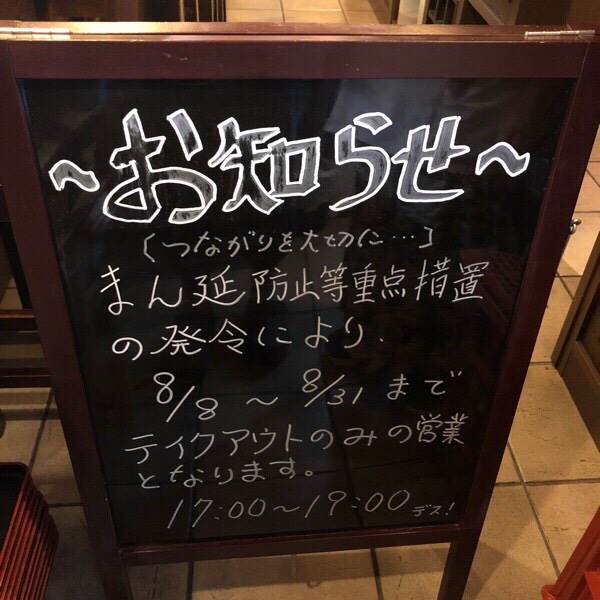 ～お知らせ～
〔つながりを大切に…〕
まん延防止等重点措置
の発令により.
8/8 ～ 8/31 まで
テイクアウトのみの営業
となります。
17:00～19:00 デス!